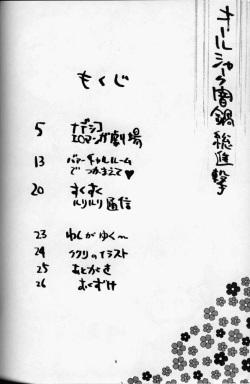 オールジャーク闇鍋総進撃
もくじ
5 ナデシコ
エロマンガ劇場
13 バーチャルルーム
でつかまえて♥
20 すくすく
ルリルリ通信
23 わしがゆく〜
24 ククリのイラスト
25 あとがき
26 おくづけ